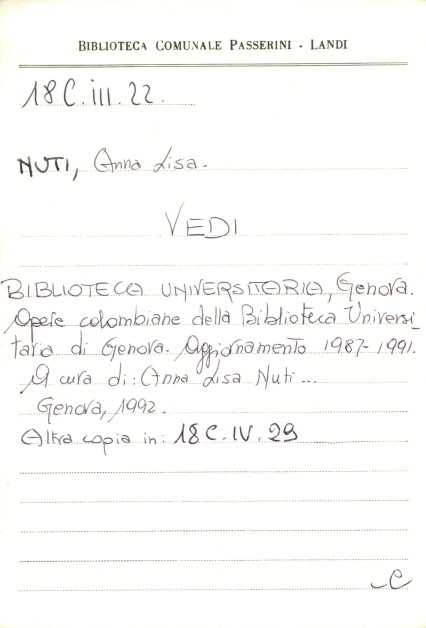 BIBLIOTECA COMUNALE PASSERINI - LANDI
18 C. III. 22.
NUTI, Anna Lisa.
VEDI
BIBLIOTECA UNIVERSITARIA, Genova.
Opere colombiane della Biblioteca Universi_
taria di Genova. Aggiornamento 1987-1991.
A cura di: Anna Lisa Nuti...
Genova, 1992.
Altra copia in: 18 C. IV. 29